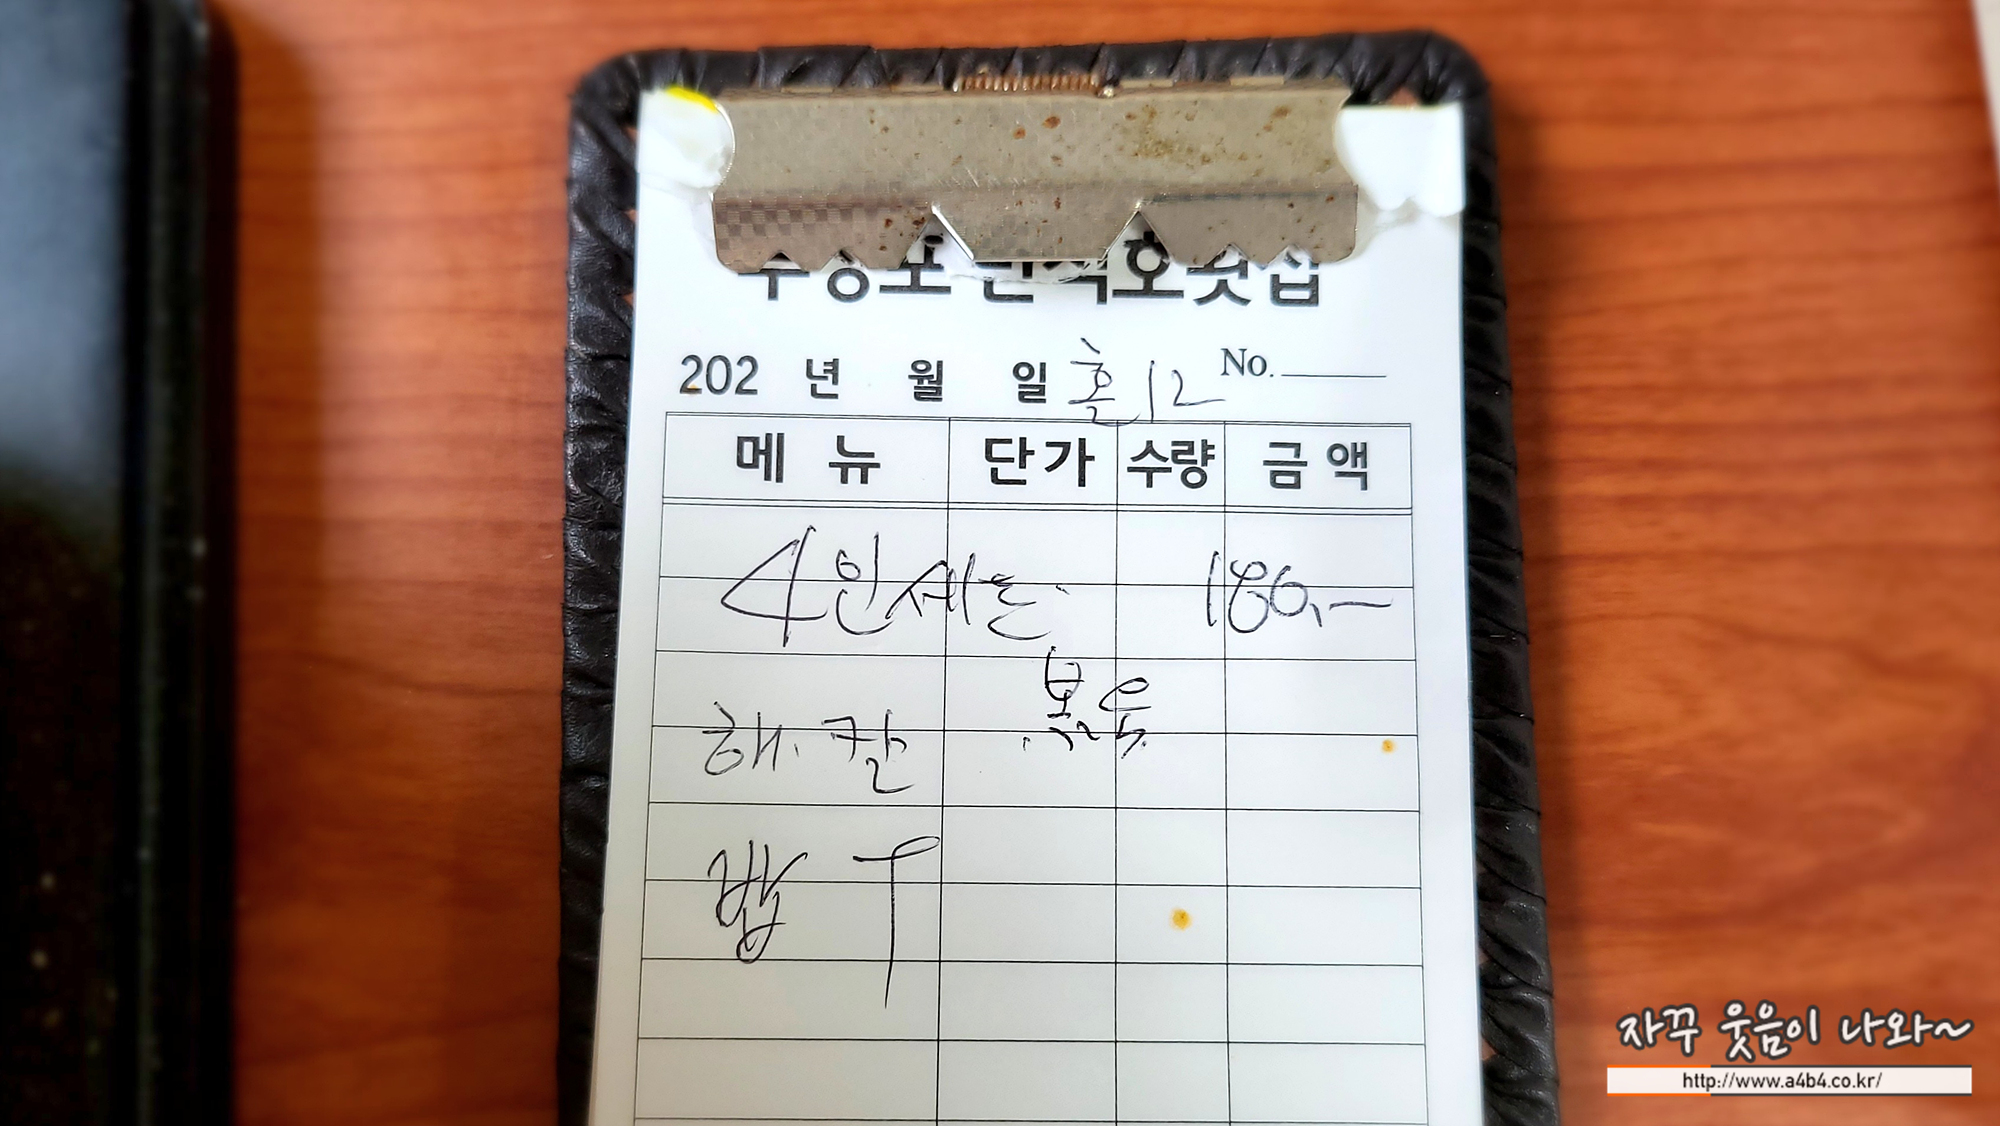 202 년 월 일 홀12 No.
메뉴 단가 수량 금액
4인세트 180,-
볶음
해.칼
밥 T
자꾸 웃음이 나와~
http://www.a4b4.co.kr/